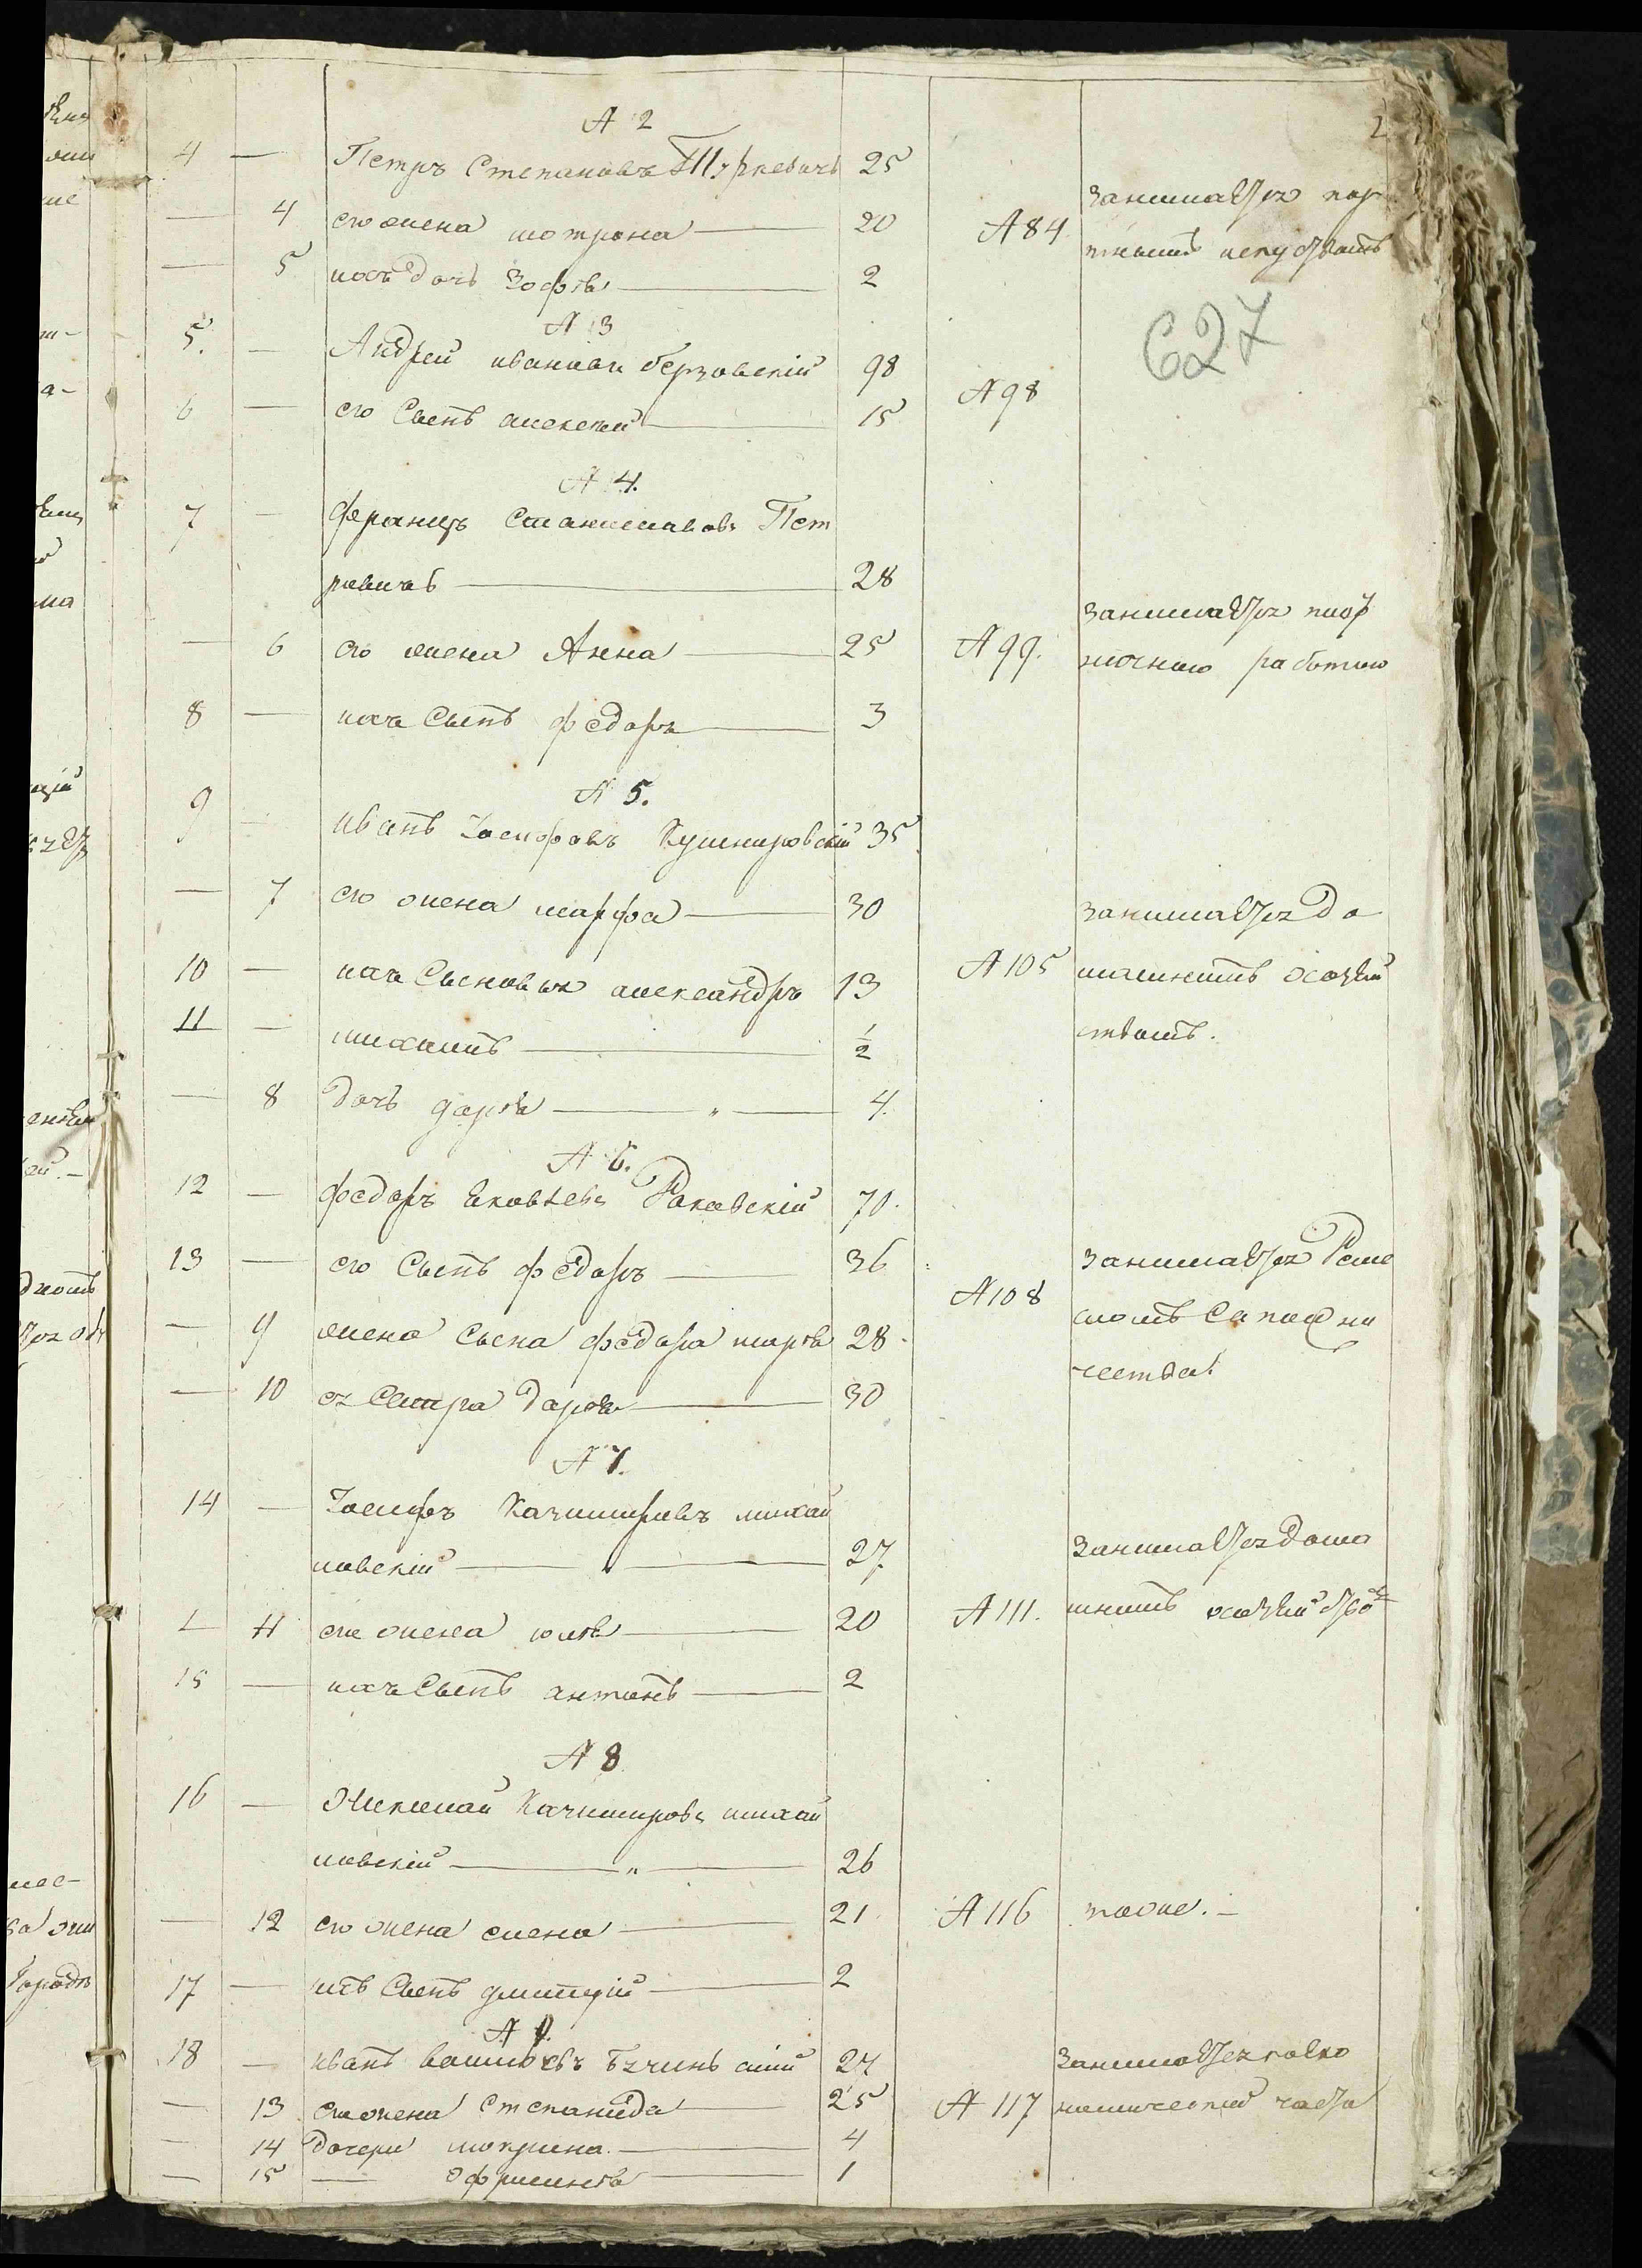 2
№ 2
4 — Петръ Степановъ 25
— 4 его жена мотрона — 20 № 84
занимается порт
нымъ искуствомъ
— 5 ихъ дочь Зофѣя — 2
627
№ 3
5. — Андрей ивановъ берзовскій 98 № 98
6 — его Сынъ алексѣй — 15
№ 4.
7 — францъ Станиславовъ Пет
ровичъ — 28
— 6 его жена Анна — 25 № 99.
занимается плот
ничною работою
8 — ихъ Сынъ федоръ — 3
№ 5.
9 — иванъ Іосифовъ Кушнировскій 35
— 7 его жена марфа — 30
занимается до
10 — ихъ Сыновья александръ 13 № 105
машнимъ хозяй
11 — михаилъ — 1/2
ствомъ.
— 8 дочь дарѣя — 4.
№ 6.
12 — федоръ Яковлевъ Раковскій 70.
13 — его Сынъ федоръ — 36 № 108
занимается Реме
сломъ Сапожни
чества
— 9 жена Сына федора марѣя 28.
— 10 ея Сестра дарѣя — 30
№ 7.
14 — Іосифъ Казимировъ михай
ловскій — 27
— 11 его жена юлѣя — 20 № 111.
занимается дома
шнимъ хозяйство
15 — ихъ Сынъ антонъ — 2
№ 8
16 — Николай Казимировъ михай
ловскій — 26
— 12 его жена елена — 21 № 116 тоже. —
17 — ихъ Сынъ дмитрій — 2
№ 9.
18 — иванъ васильевъ 27
занимается
— 13 его жена Степанида — 25 № 117
— 14 дочери мокрина. — 4
— 15 — Офросинѣя — 1